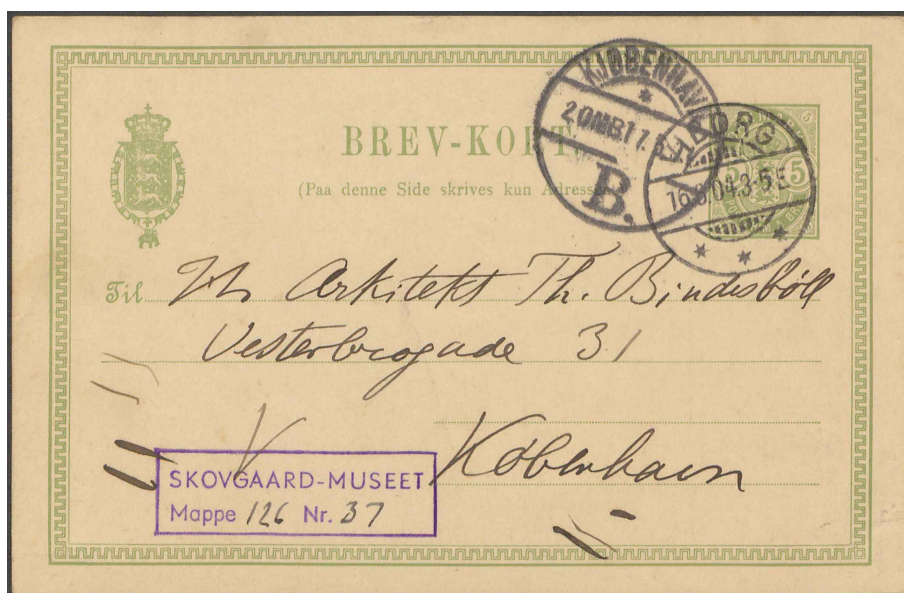 BREV-KORT
(Paa denne Side skrives kun Adressen)
KJØBENHAVN
2.OMB 17.
B.
BORG
16.8.04.3-5E
5
Til Hr Arkitekt Th. Bindesböll
Vesterbrogade 31
V København
SKOVGAARD-MUSEET
Mappe 126 Nr. 37